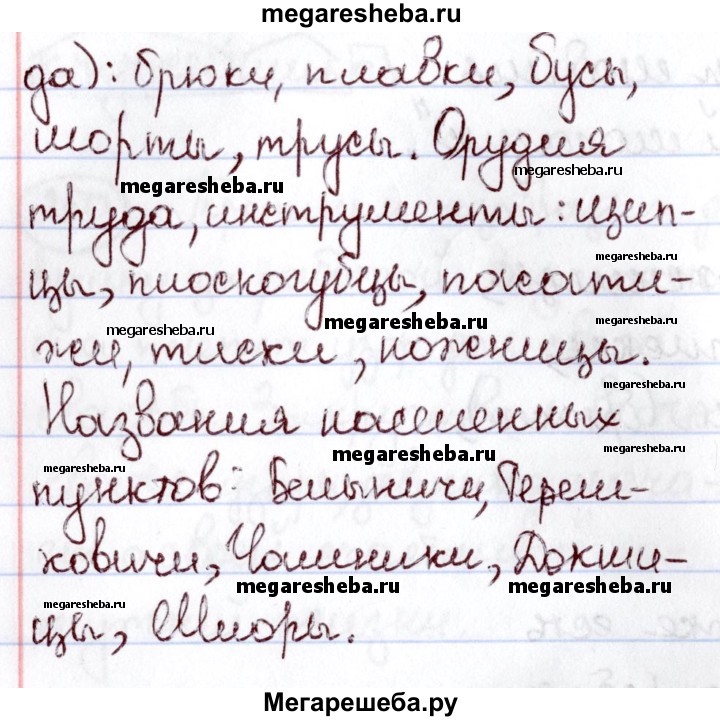 megaresheba.ru
да): брюки, плавки, бусы,
шорты, трусы. Орудия
megaresheba.ru
megaresheba.ru
труда, инструменты: щип-
megaresheba.ru
цы, плоскогубцы, пассати-
megaresheba.ru
megaresheba.ru
жи, тиски, ножницы.
megaresheba.ru
Названия населенных
megaresheba.ru
megaresheba.ru
пунктов: Белыничи, Тереш-
ковичи, Чашники, Докши-
megaresheba.ru
megaresheba.ru
megaresheba.ru
цы, Шиоры.
Мегарешеба.ру